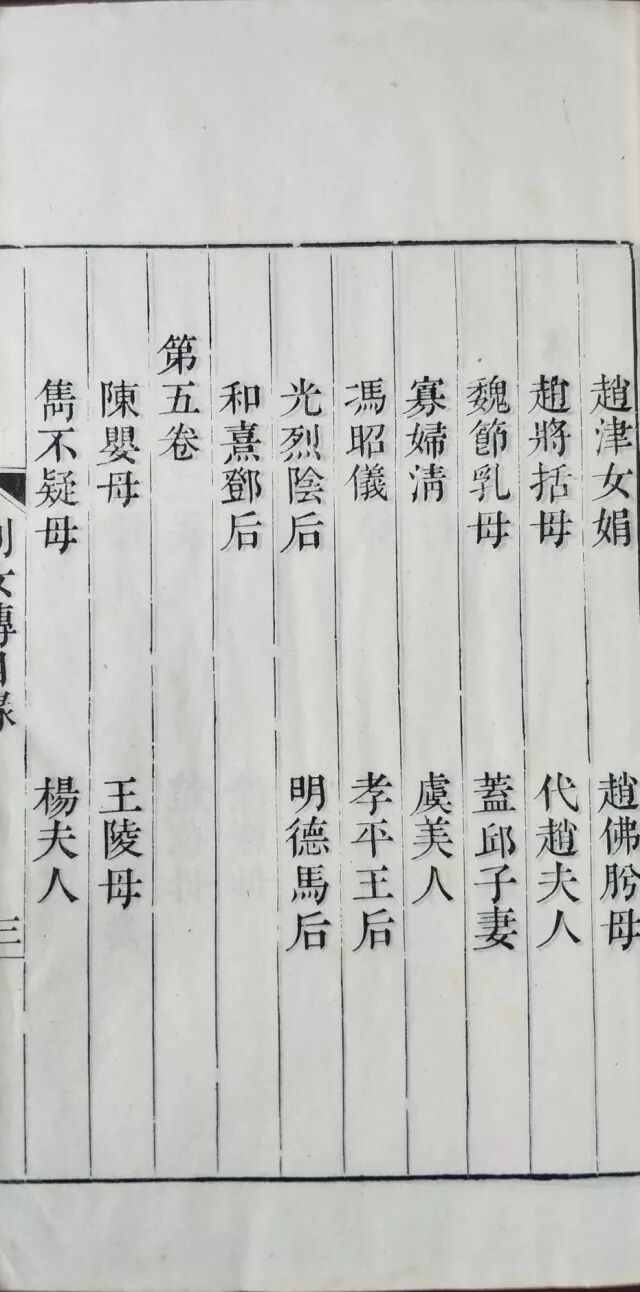 趙津女娟 趙佛肸母
趙將括母 代趙夫人
魏節乳母 蓋邱子妻
寡婦淸 虞美人
馮昭儀 孝平王后
光烈陰后 明德馬后
和熹鄧后
第五卷
陳嬰母 王陵母
雋不疑母 楊夫人
列女傳目錄 三